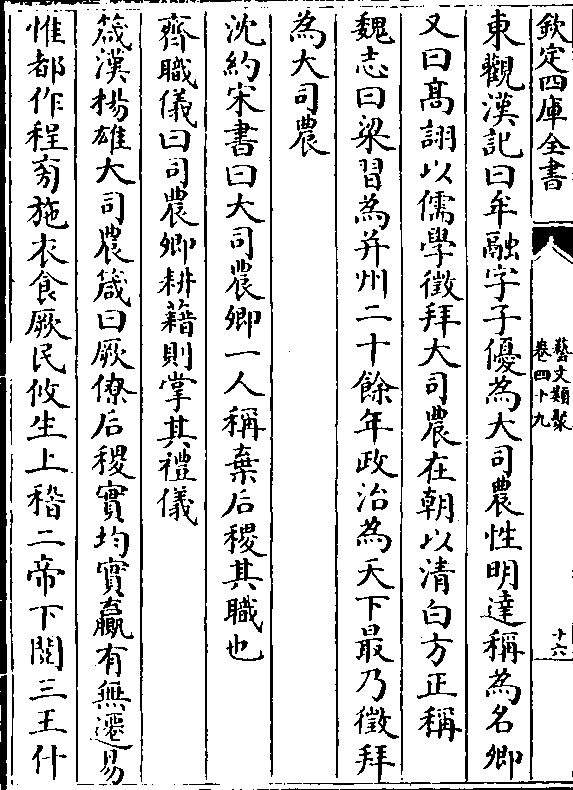 欽定四庫全書
藝文類聚
卷四十九
十六
東觀漢記曰牟融字子優為大司農性明達稱為名卿
又曰髙詡以儒學徵拜大司農在朝以清白方正稱
魏志曰梁習為并州二十餘年政治為天下最乃徵拜
為大司農
沈約宋書曰大司農卿一人稱棄后稷其職也
齊職儀曰司農卿耕藉則掌其禮儀
箴漢楊雄大司農箴曰厥僚后稷實均實贏有無遷易
惟都作程旁施衣食厥民攸生上稽二帝下閱三王什